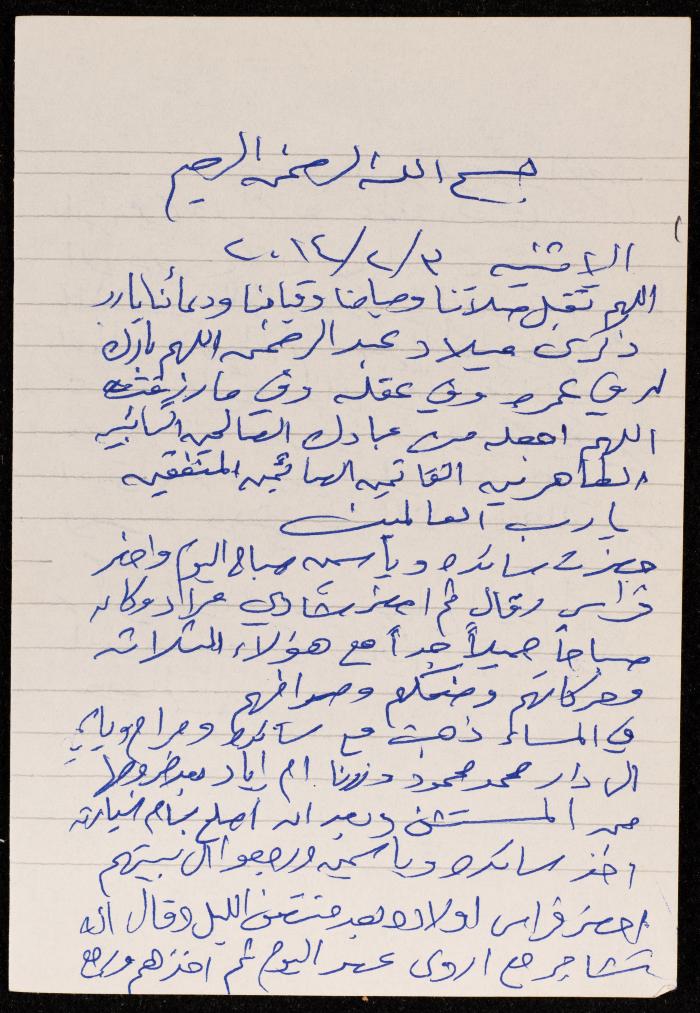 بسم الله الرحمن الرحيم
الاثنين ٢٠١٤/٢/٣
اللهم تقبل صلاتنا وصيامنا وقيامنا ودعائنا يارب
ذكرى ميلاد عبد الرحمن اللهم بارك
له في عمره وفي عقله وفي ما رزقته
اللهم اجعله من عبادك الصالحين التائبين
الطاهرين القانتين الصائمين المتفقين
يارب العالمين
جهزت سائده وياسمين صباح اليوم واحضر
فراس وقال ثم احضر شادي مراد وكان
صباحاً جميلاً جداً مع هؤلاء الثلاثة
وحركاتهم وضحكهم وصراخهم
في المساء ذهبت مع سائده ومراح
الى دار محمد محمود وزرنا ام اياد بعد خروجها
من المستشفى وبعد ان اصلح بسام سيارته
اخذ سائده وياسمين ورجعوا الى بيتهم
احضر فراس اولاده بعد منتصف الليل وقال انه
تشاجر مع اروى عصر اليوم ثم اخذهم ورجع